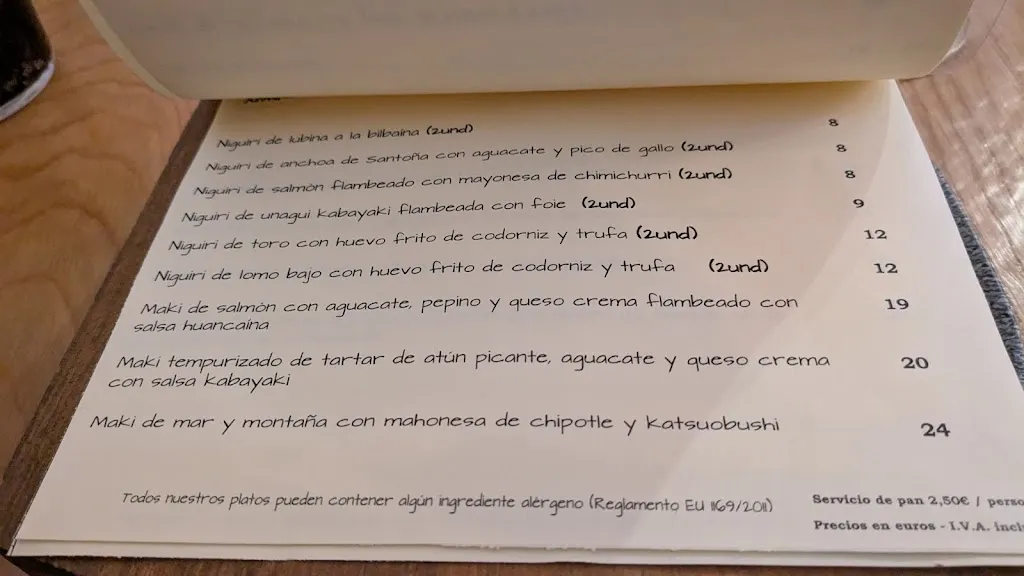 Niguiri de lubina a la bilbaina (2und) 8
Niguiri de anchoa de Santoña con aguacate y pico de gallo (2und) 8
Niguiri de salmón flambeado con mayonesa de chimichurri (2und) 8
Niguiri de unagui kabayaki flambeada con foie (2und) 9
Niguiri de toro con huevo frito de codorniz y trufa (2und) 12
Niguiri de lomo bajo con huevo frito de codorniz y trufa (2und) 12
Maki de salmón con aguacate, pepino y queso crema flambeado con 19
salsa huancaína
Maki tempurizado de tartar de atún picante, aguacate y queso crema 20
con salsa kabayaki
Maki de mar y montaña con mahonesa de chipotle y katsuobushi 24
Todos nuestros platos pueden contener algún ingrediente alérgeno (Reglamento EU 1169/2011)
Servicio de pan 2,50€ /
Precios en euros - I.V.A.